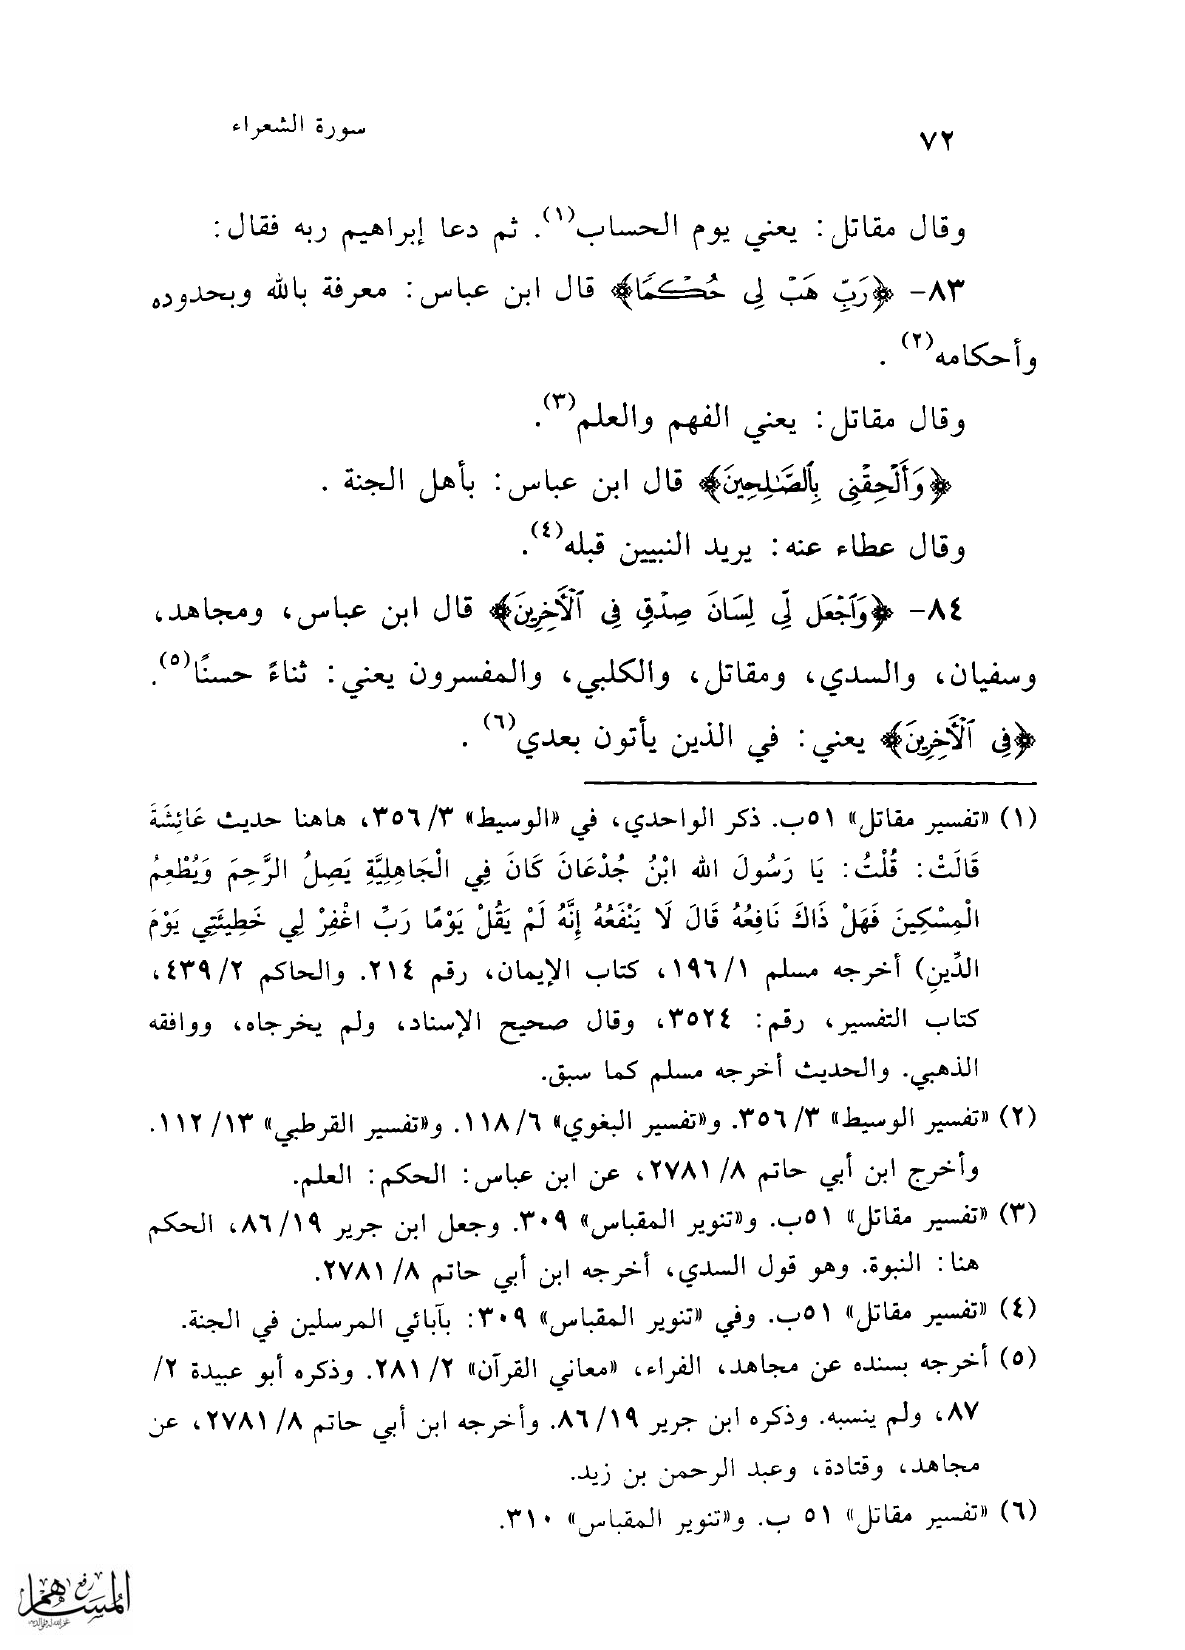 ٧٢
سورة الشعراء
وقال مقاتل: يعني يوم الحساب(١). ثم دعا إبراهيم ربه فقال:
٨٣- ﴿رَبِّ هَبْ لِي حُكْمًا﴾ قال ابن عباس: معرفة بالله وبحدوده
وأحكامه(٢) .
وقال مقاتل: يعني الفهم والعلم(٣).
﴿وَأَلْحِقْنِي بِالصَّالِحِينَ﴾ قال ابن عباس: بأهل الجنة .
وقال عطاء عنه: يريد النبيين قبله(٤).
٨٤- ﴿وَاجْعَل لِّي لِسَانَ صِدْقٍ فِي الْآخِرِينَ﴾ قال ابن عباس، ومجاهد،
وسفيان، والسدي، ومقاتل، والكلبي، والمفسرون يعني: ثناءً حسنًا(٥).
﴿فِي الْآخِرِينَ﴾ يعني: في الذين يأتون بعدي(٦) .
(١) «تفسير مقاتل» ٥١ب. ذكر الواحدي، في «الوسيط» ٣/ ٣٥٦، هاهنا حديث عَائِشَةَ
قَالَتْ: قُلْتُ: يَا رَسُولَ الله ابْنُ جُدْعَانَ كَانَ فِي الْجَاهِلِيَّةِ يَصِلُ الرَّحِمَ وَيُطْعِمُ
الْمِسْكِينَ فَهَلْ ذَاكَ نَافِعُهُ قَالَ لَا يَنْفَعُهُ إِنَّهُ لَمْ يَقُلْ يَوْمًا رَبِّ اغْفِرْ لِي خَطِيئَتِي يَوْمَ
الدِّينِ) أخرجه مسلم ١/ ١٩٦، كتاب الإيمان، رقم ٢١٤. والحاكم ٢/ ٤٣٩،
كتاب التفسير، رقم: ٣٥٢٤، وقال صحيح الإسناد، ولم يخرجاه، ووافقه
الذهبي. والحديث أخرجه مسلم كما سبق.
(٢) «تفسير الوسيط» ٣/ ٣٥٦. و«تفسير البغوي» ٦/ ١١٨. و«تفسير القرطبي» ١٣/ ١١٢.
وأخرج ابن أبي حاتم ٨/ ٢٧٨١، عن ابن عباس: الحكم: العلم.
(٣) «تفسير مقاتل» ٥١ب. و«تنوير المقباس» ٣٠٩. وجعل ابن جرير ١٩/ ٨٦، الحكم
هنا: النبوة. وهو قول السدي، أخرجه ابن أبي حاتم ٨/ ٢٧٨١.
(٤) «تفسير مقاتل» ٥١ب. وفي «تنوير المقباس» ٣٠٩: بآبائي المرسلين في الجنة.
(٥) أخرجه بسنده عن مجاهد، الفراء، «معاني القرآن» ٢/ ٢٨١. وذكره أبو عبيدة ٢/
٨٧، ولم ينسبه. وذكره ابن جرير ١٩/ ٨٦. وأخرجه ابن أبي حاتم ٨/ ٢٧٨١، عن
مجاهد، وقتادة، وعبد الرحمن بن زيد.
(٦) «تفسير مقاتل» ٥١ ب. و«تنوير المقباس» ٣١٠.
رفع
المساهم